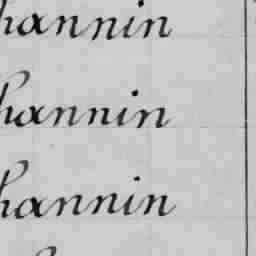 hannin
hannin
hannin